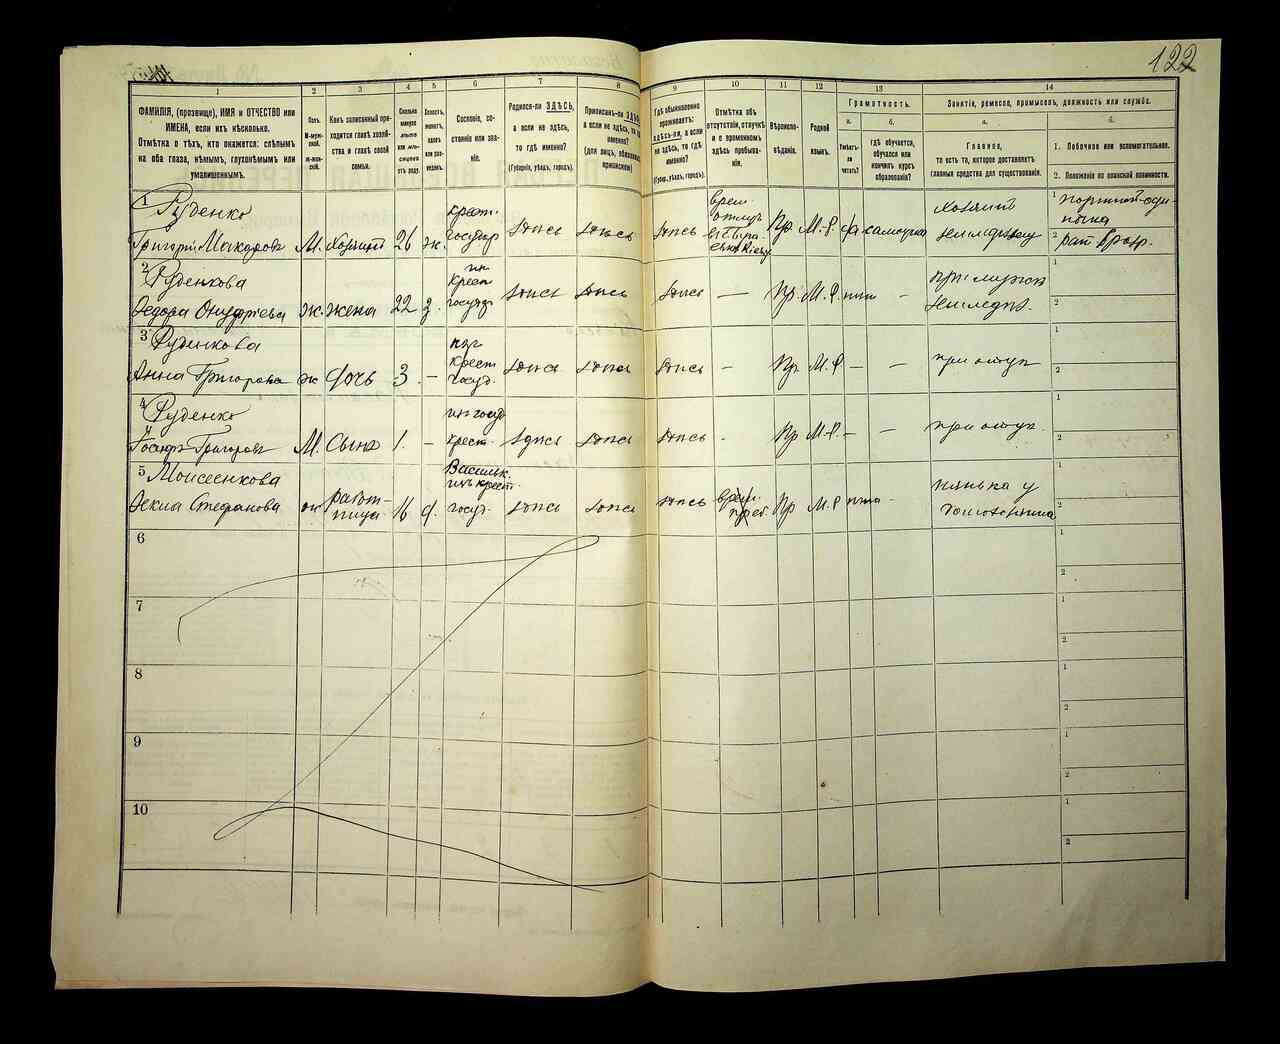 122
1
2
3
4
5
6
7
8
9
10
11
12
13
14
ФАМИЛІЯ, (прозвище), ИМЯ и ОТЧЕСТВО или
ИМЕНА, если ихъ нѣсколько.
Отмѣтка о тѣхъ, кто окажется: слѣпымъ
на оба глаза, нѣмымъ, глухонѣмымъ или
умалишеннымъ.
Полъ.
М-мужской.
Ж-женскій.
Какъ записанный приходится главѣ хозяйства и главѣ своей семьи.
Сколько минуло лѣтъ или мѣсяцевъ отъ роду.
Холостъ, женатъ, вдовъ или разведенъ.
Сословіе, состояніе или званіе.
Родился-ли ЗДѢСЬ,
а если не здѣсь,
то гдѣ именно?
(Губернія, уѣздъ, городъ).
Приписанъ-ли ЗДѢСЬ,
а если не здѣсь, то гдѣ
именно?
(для лицъ, обязанныхъ
припискою)
Гдѣ обыкновенно
проживаетъ:
здѣсь-ли, а если
не здѣсь, то гдѣ
именно?
(Губер., уѣздъ, городъ).
Отмѣтка объ
отсутствіи, отлучкѣ
и о временномъ
здѣсь пребываніи.
Вѣроисповѣданіе.
Родной
языкъ.
Грамотность.
а.
Умѣетъ-ли
читать?
б.
Гдѣ обучается,
обучался или
кончилъ курсъ
образованія?
Занятіе, ремесло, промыселъ, должность или служба.
а.
Главное,
то есть то, которое доставляетъ
главныя средства для существованія.
б.
1. Побочное или вспомогательное.
2. Положеніе по воинской повинности.
1
Руденко
Григорій Макаровъ М. хозяинъ 26 ж.
крест.
государ
здѣсь здѣсь здѣсь
врем.
Пр М.-Р. да самоучка
хозяинъ
земледѣлец
1
портной-одиночка
2
2
Руденкова
Федора Онуфріева ж. жена 22 з.
крест
здѣсь здѣсь здѣсь — Пр. М.Р. нѣт -
при мужѣ
земледѣл.
1
2
3
Руденкова
Анна Григорова ж дочь 3 —
крест
госуд.
здѣсь здѣсь здѣсь — Пр М.Р — —
при отцѣ
1
2
4
Руденко
Григоровъ М. Сынъ 1. —
изъ госуд
крест.
здѣсь здѣсь здѣсь Пр М.-Р. — —
при отцѣ.
1
2
5 Моисеенкова
Стефанова ж. работница 16 д.
Васильк.
изъ крест.
госуд.
здѣсь здѣсь здѣсь Пр М.Р нѣт -
нянька у
1
2
6
1
2
7
1
2
8
1
2
9
1
2
10
1
2